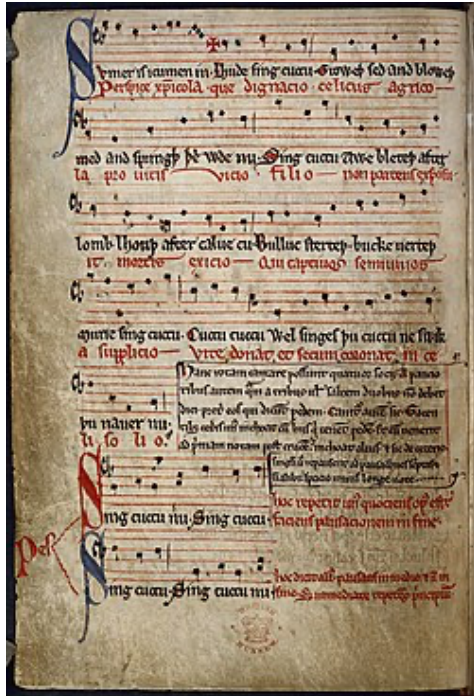 Sumer is icumen in. Lhude sing cuccu. Groweþ sed and bloweþ
Perspice xpicola que dignacio celicus agrico
med and springþ þe wde nu. Sing cuccu Awe bleteþ after
la pro uitis vicio filio non parcens exposu
lomb lhouþ after calue cu. Bulluc sterteþ. bucke uerteþ
it mortis exicio Qui captiuos semiuiuos
murie sing cuccu. Cuccu cuccu Wel singes þu cuccu ne swik
a supplicio Vite donat et secum coronat in ce
Hanc rotam cantare possunt quatuor socij. A paucio
ribus autem quam a tribus uel saltem duobus non debet
dici preter eos qui dicunt pedem. Canitur autem sic. Tacen
þu nauer nu.
tibus ceteris unus inchoat cum hijs qui tenent pedem. Et cum uenerit
li so lio.
ad primam notam post crucem inchoat alius. et sic de ceteris
Sing cuccu nu. Sing cuccu.
hoc repetit unus quociens opus est
faciens pausacionem in fine
Pes
Sing cuccu. Sing cuccu nu
hoc dicit alius pausans in medio et non in
fine. Set immediate repetens principium